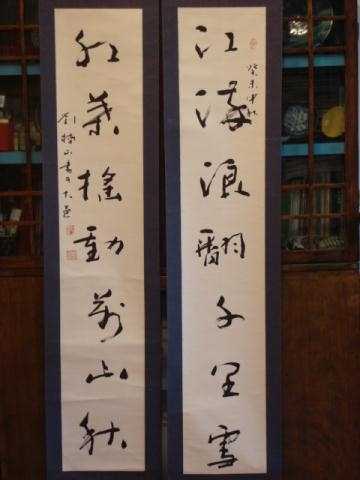 癸未中秋
江海浪翻千里雪
紅葉搖動萬山秋
劉山書